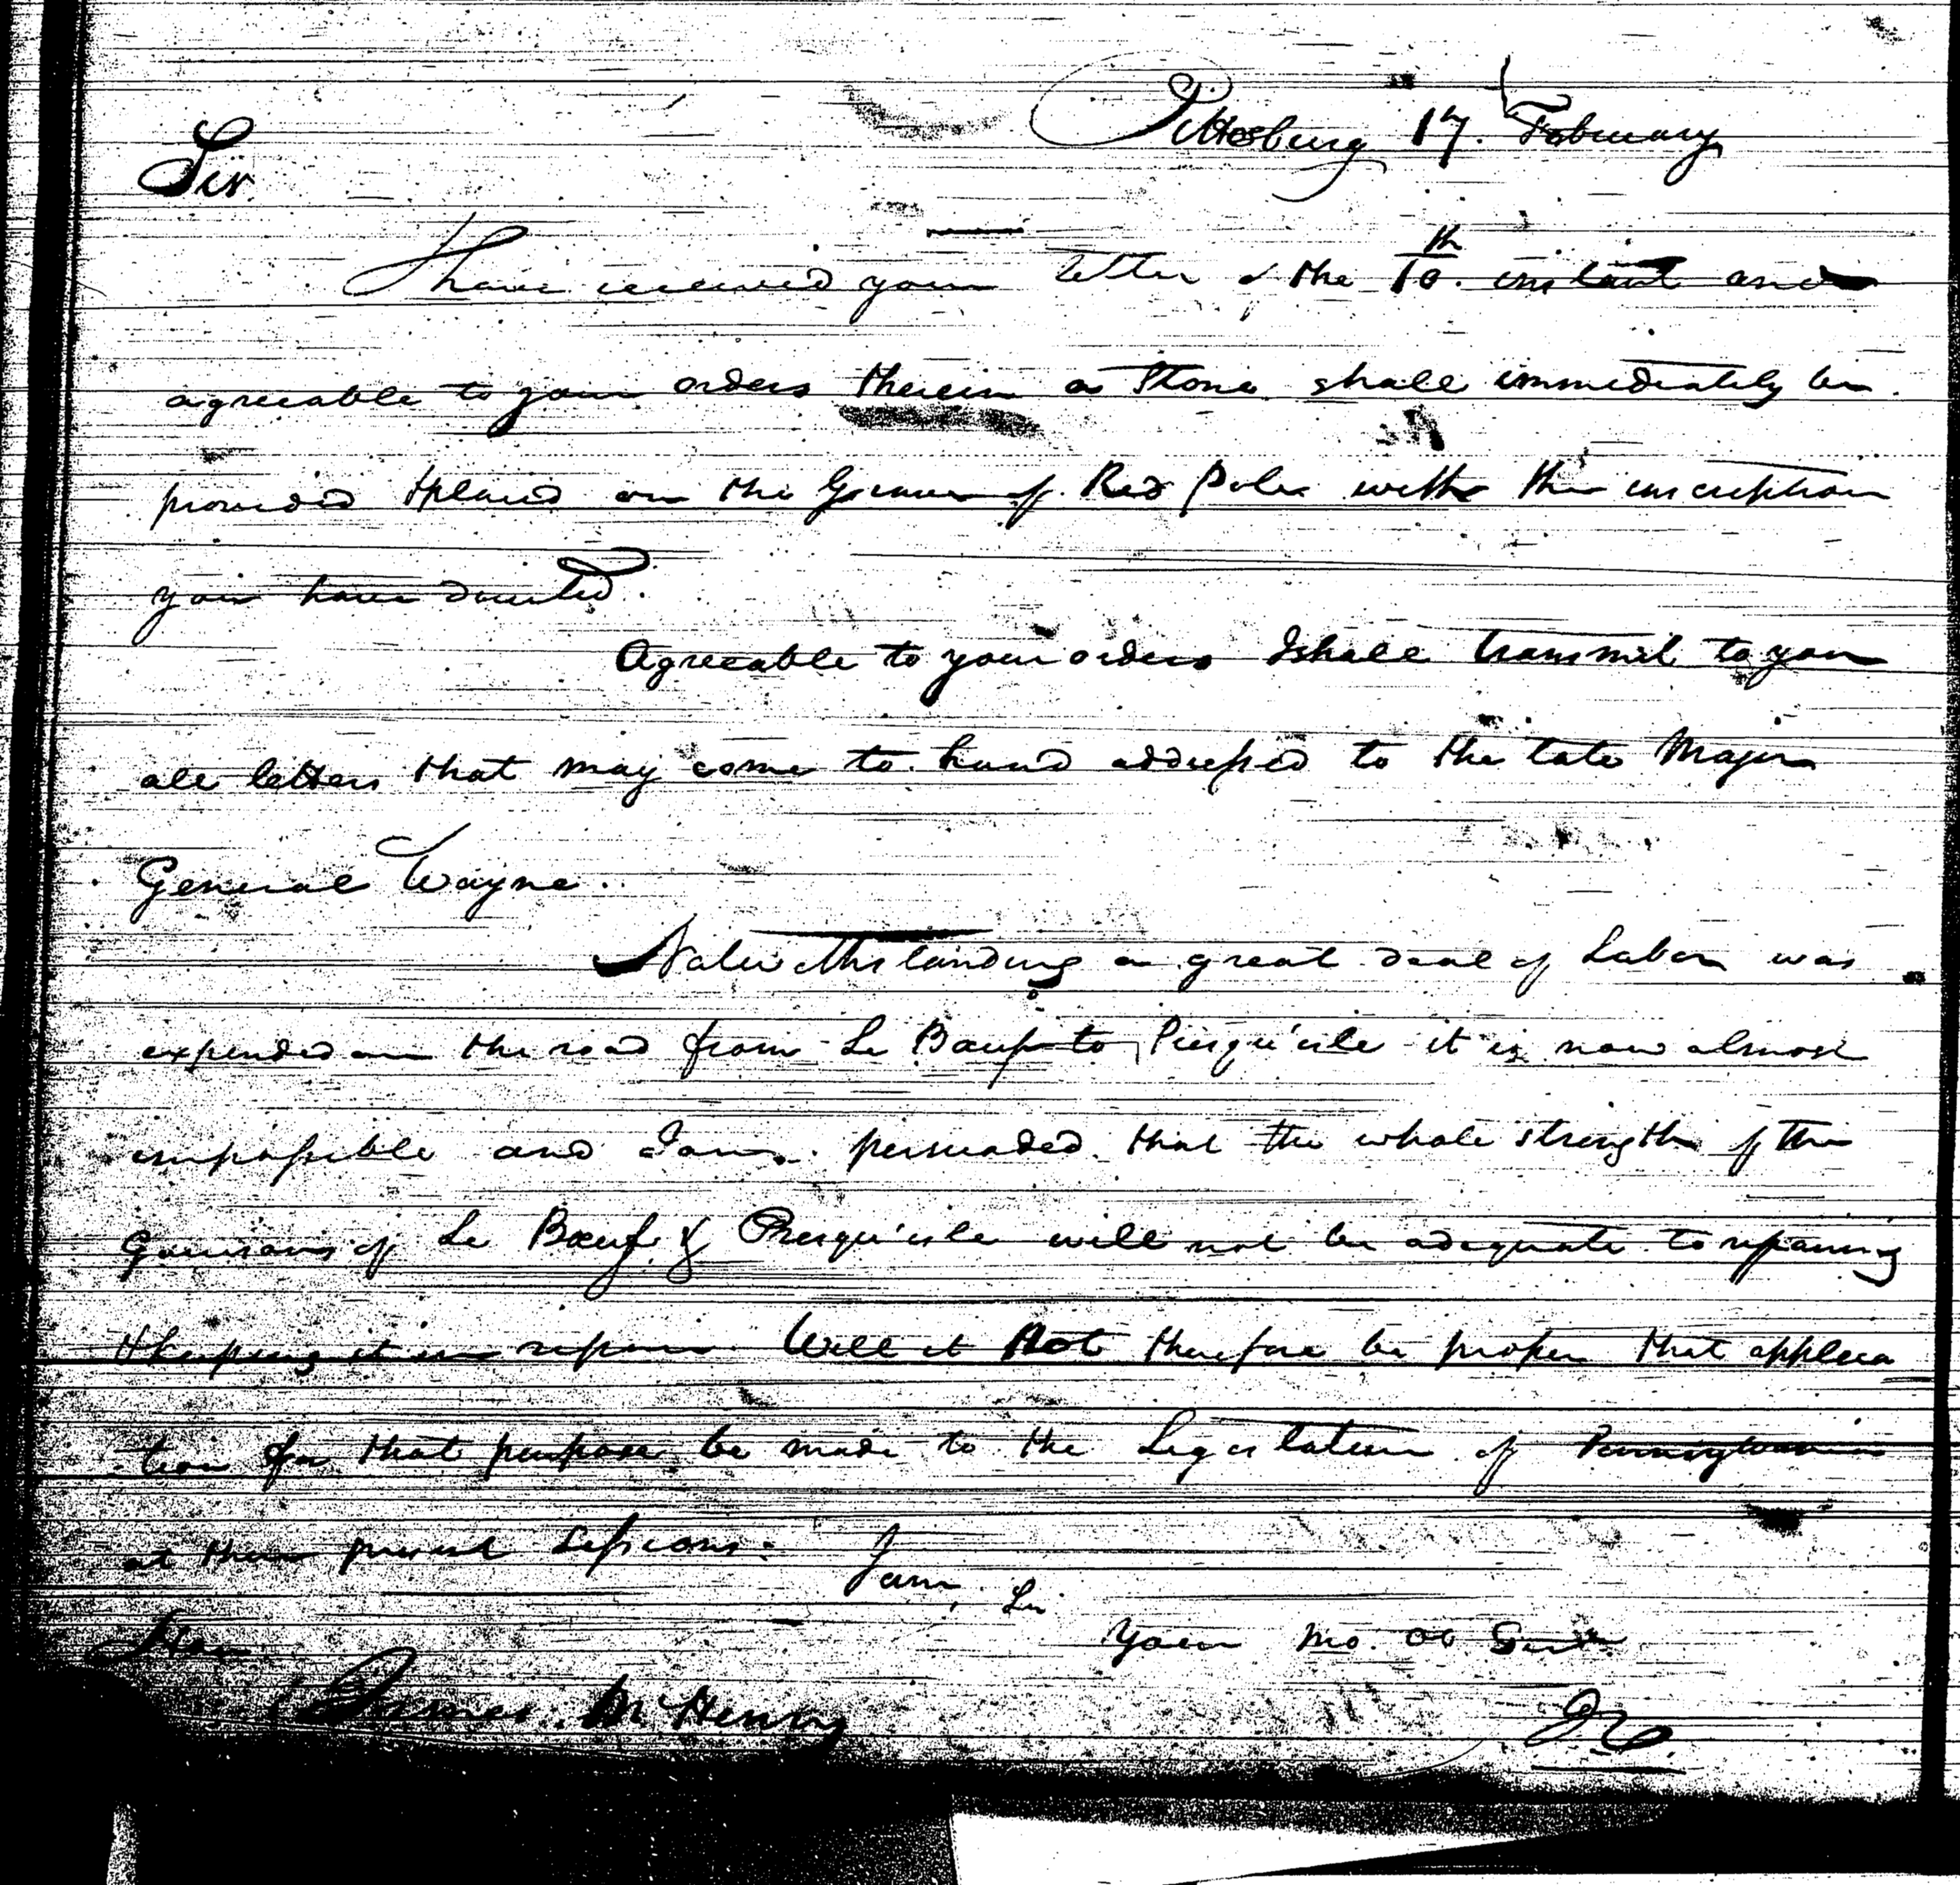 Pittsburg 17. February
Sir
I have received your letter of the 10th. instant and
agreeable to your orders therein a Stone shall immediately be
provided & placed on the Grave of Red Pole with the inscription
you have directed.
Agreeable to your orders I shall transmit to you
all letters that may come to hand addressed to the late Major
General Wayne.
Notwithstanding a great deal of Labor was
expended on the road from Le Bœuf to Presqu'isle it is now almost
impassible and I am persuaded that the whole strength of the
Garrisons of Le Bœuf & Presqu'isle will not be adequate to repairing
& keeping it in repair. Will it not therefore be proper that applica
tion for that purpose be made to the Legislature of Pennsylvania
at their present Sessions.
I am, Sir
Your Mo. Ob Servt
Hon
James McHenry